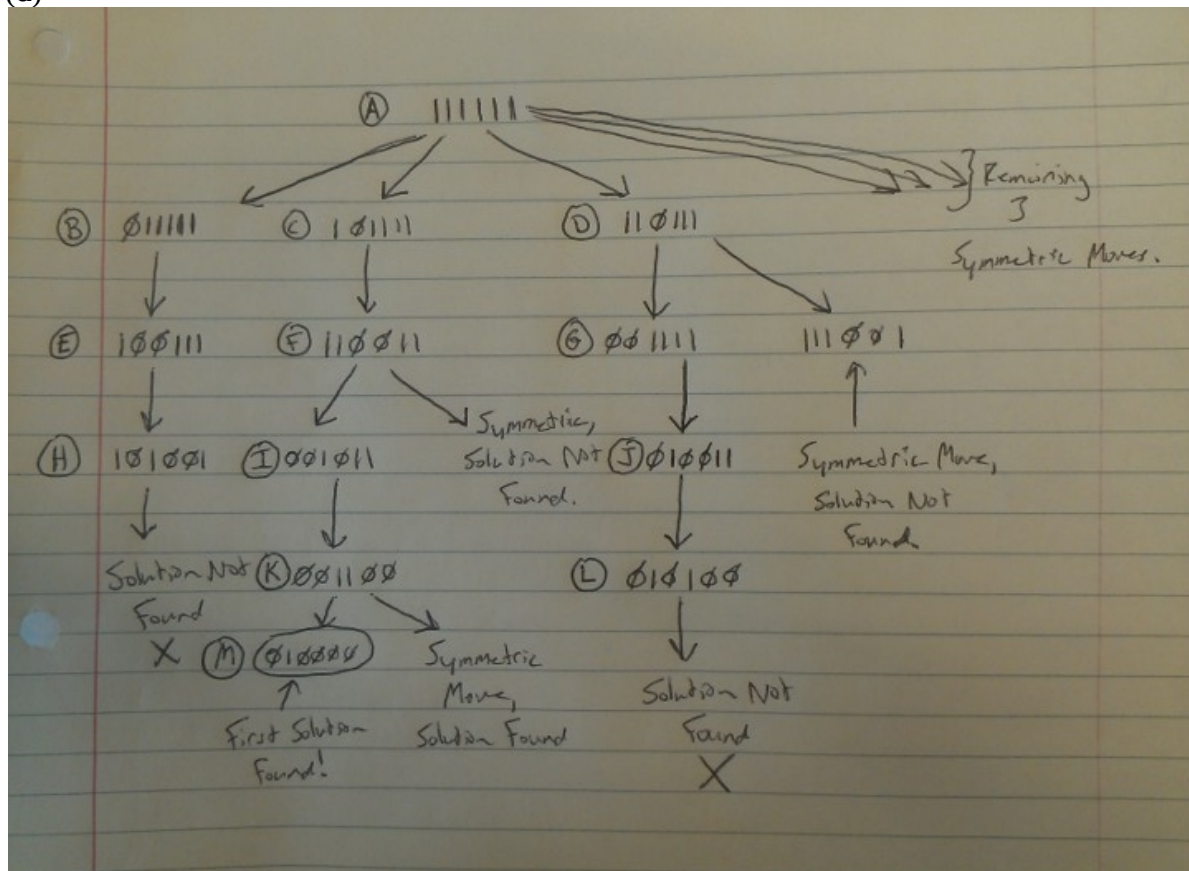 (d)
Ⓐ 111111
} Remaining
3
Symmetric Moves.
Ⓑ Ø11111 Ⓒ 1Ø1111 Ⓓ 11Ø111
Ⓔ 1ØØ111 Ⓕ 11ØØ11 Ⓖ ØØ1111 111ØØ1
Ⓗ 1Ø1ØØ1 Ⓘ ØØ1Ø11 Symmetric, Solution Not Found. Ⓙ Ø1ØØ11 Symmetric Move,
Solution Not
Found.
Solution Not
Found
X
Ⓚ ØØ11ØØ Ⓛ Ø1Ø1ØØ
Ⓜ Ø1ØØØØ
First Solution
Found!
Symmetric
Move,
Solution Found
Solution Not
Found
X